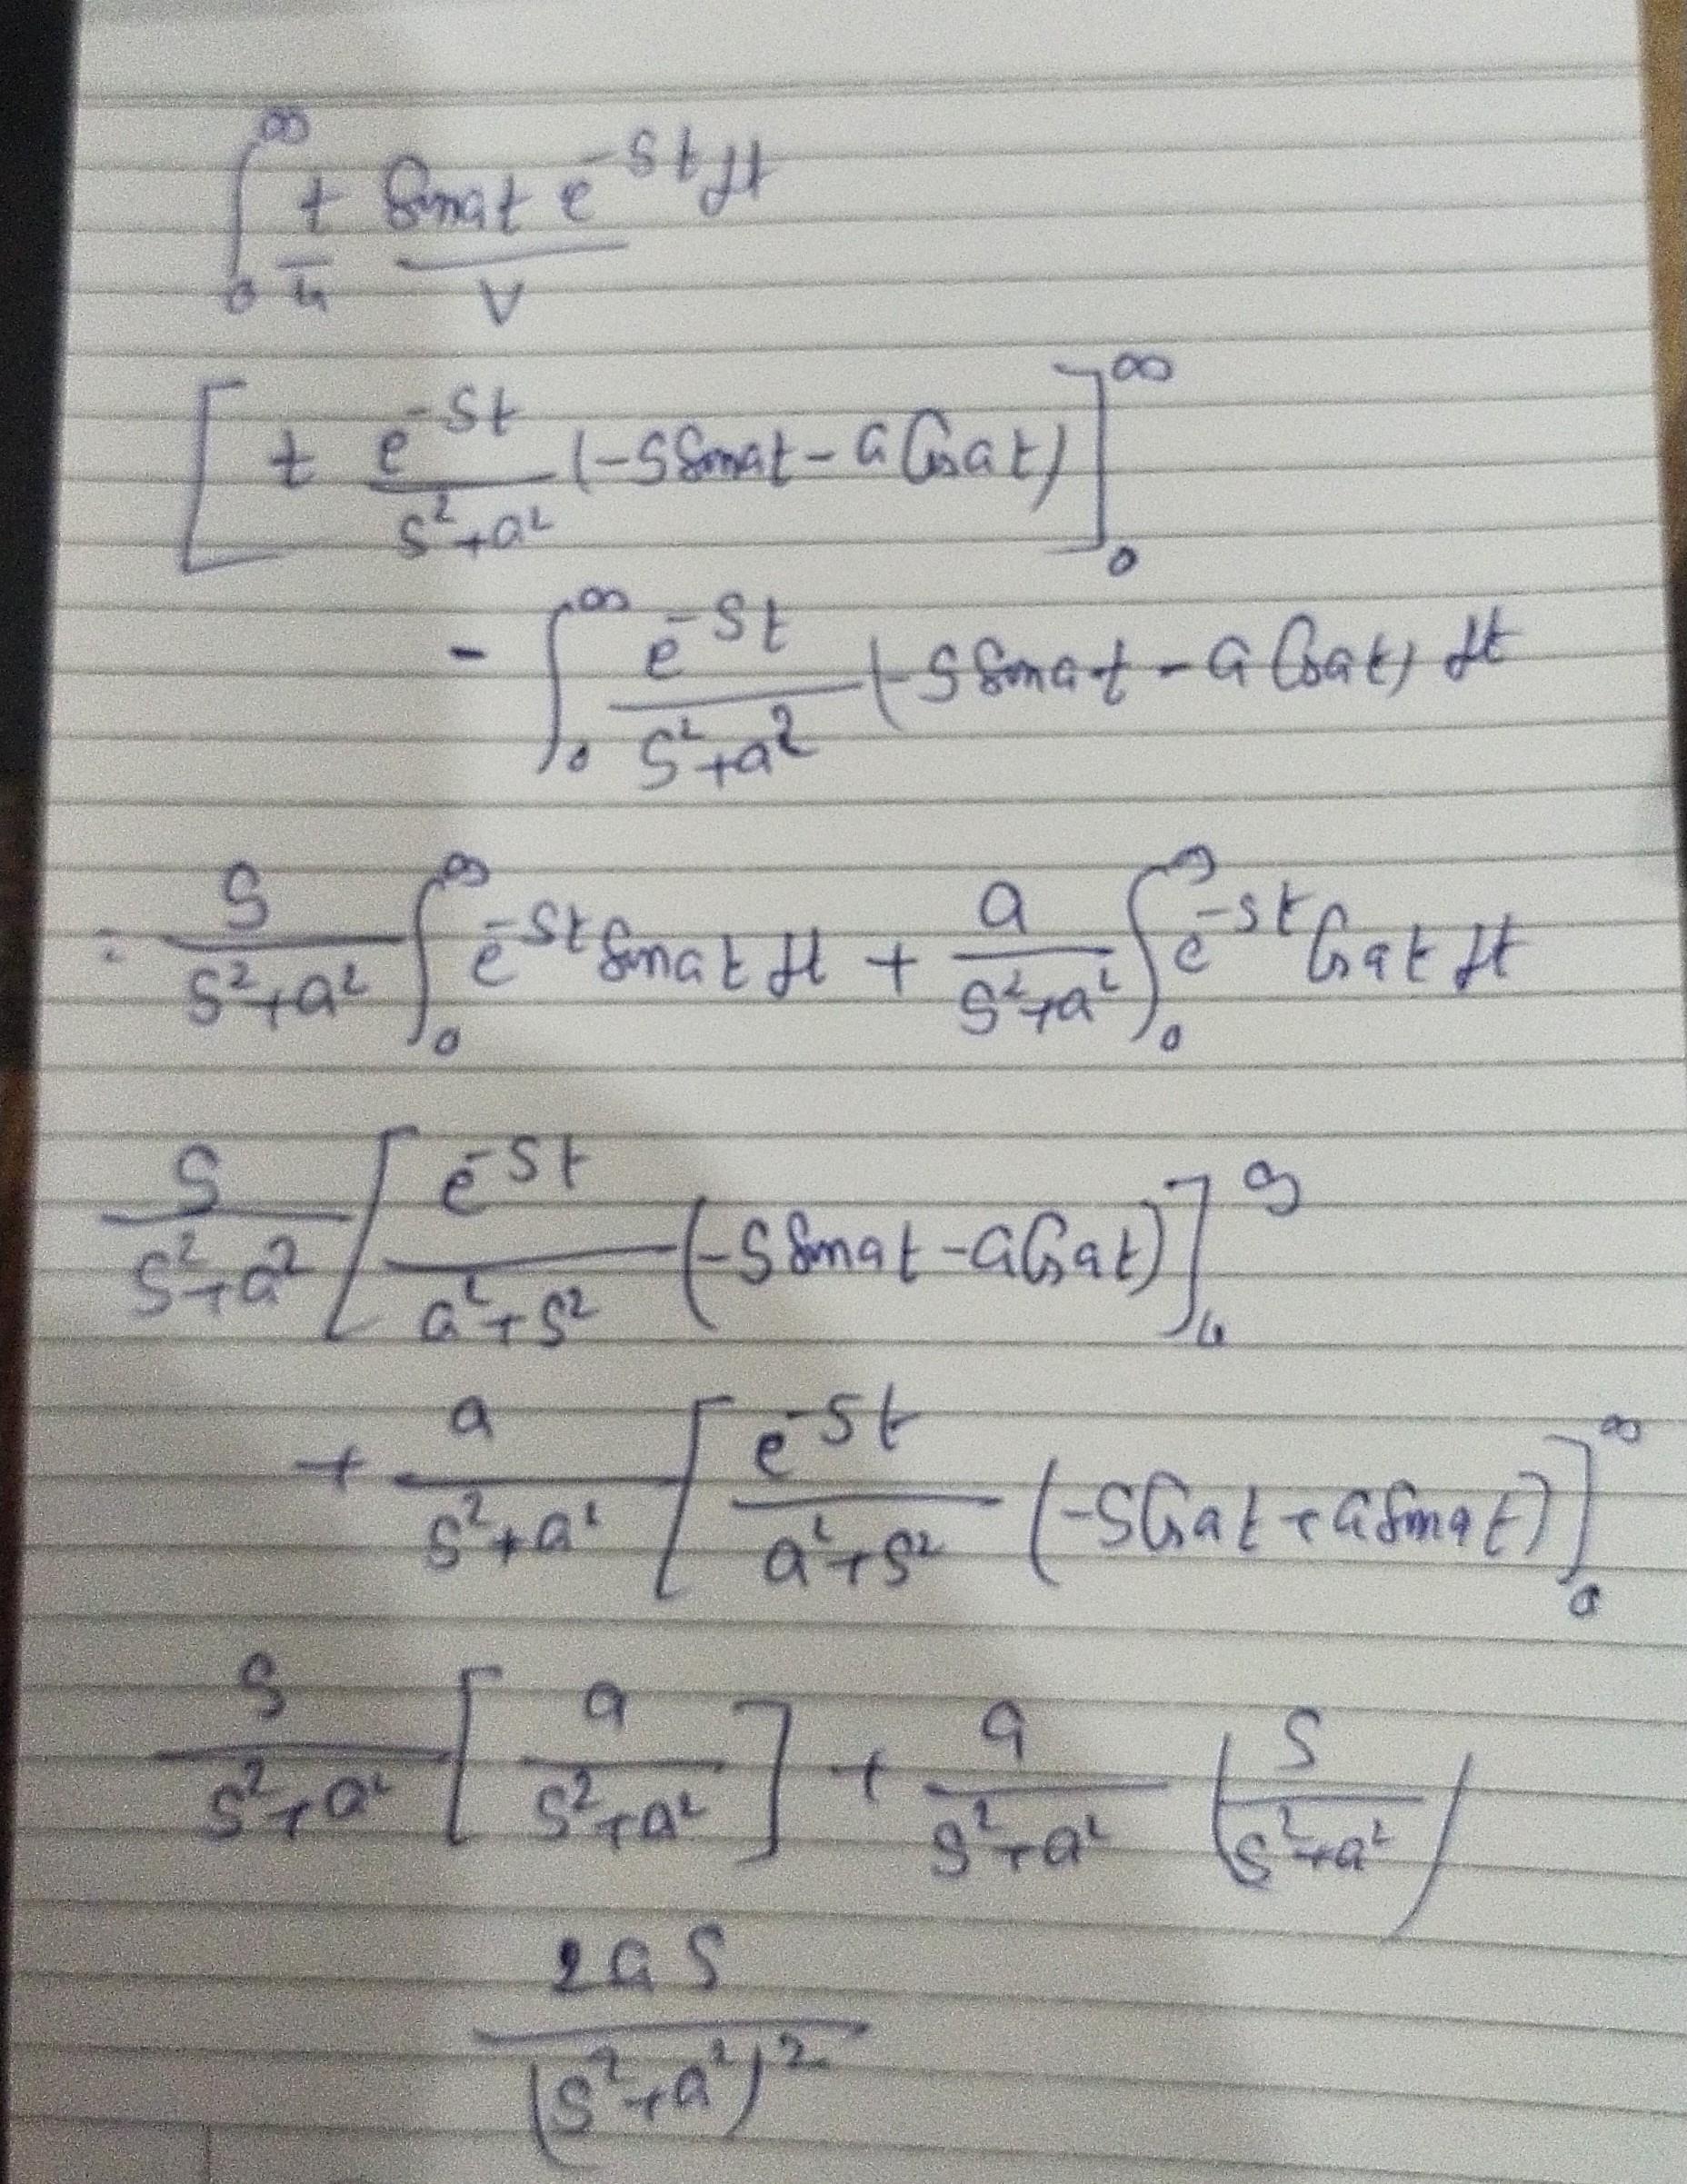 ∫₀^∞ t sin at e^{-st} dt
u v
[ t e^{-st}/(s²+a²) (-s sin at - a cos at) ]₀^∞
- ∫₀^∞ e^{-st}/(s²+a²) (-s sin at - a cos at) dt
= s/(s²+a²) ∫₀^∞ e^{-st} sin at dt + a/(s²+a²) ∫₀^∞ e^{-st} cos at dt
s/(s²+a²) [ e^{-st}/(a²+s²) (-s sin at - a cos at) ]₀^∞
+ a/(s²+a²) [ e^{-st}/(a²+s²) (-s cos at + a sin at) ]₀^∞
s/(s²+a²) [ a/(s²+a²) ] + a/(s²+a²) ( s/(s²+a²) )
2as/(s²+a²)²